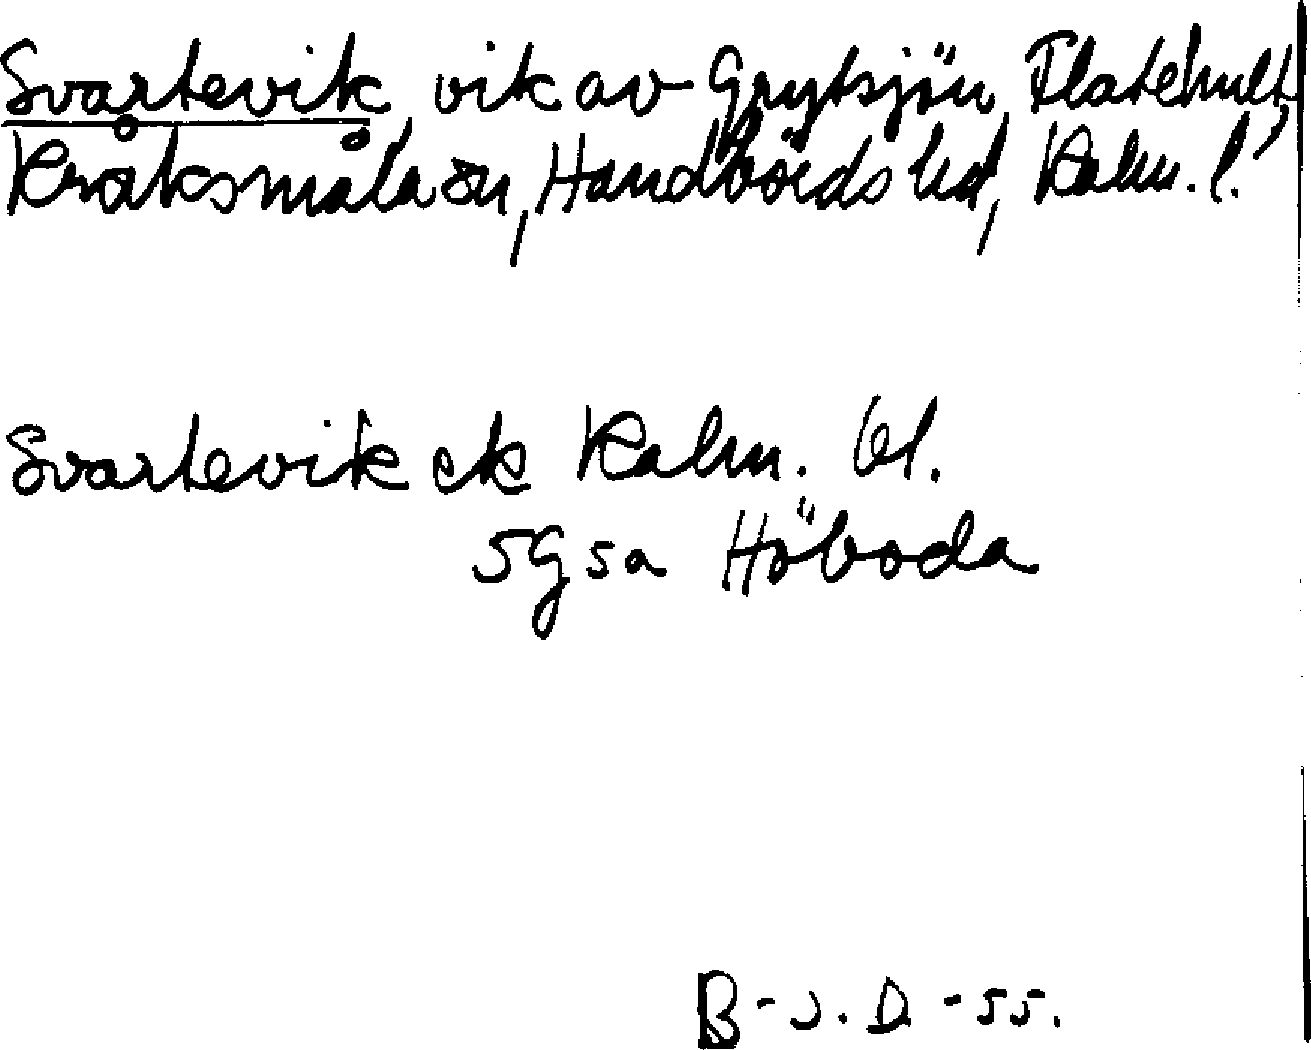 Svartevik, vik av Grytsjön, Flatehult,
Kråksmåla sn, Handbörds hd, Kalm. l.
Svartevik ek Kalm. bl.
5G5a Höboda
B-J. D -55.